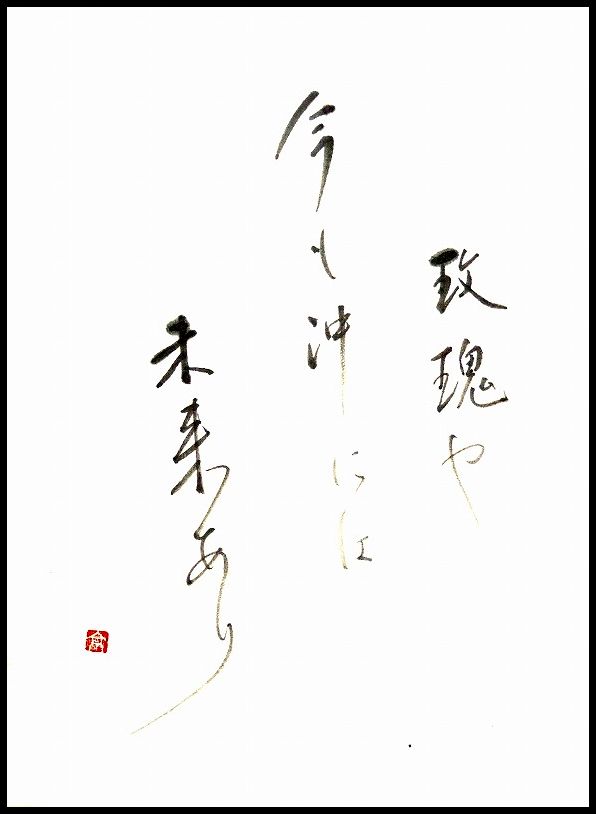 玫瑰や
今も沖には
未来あり